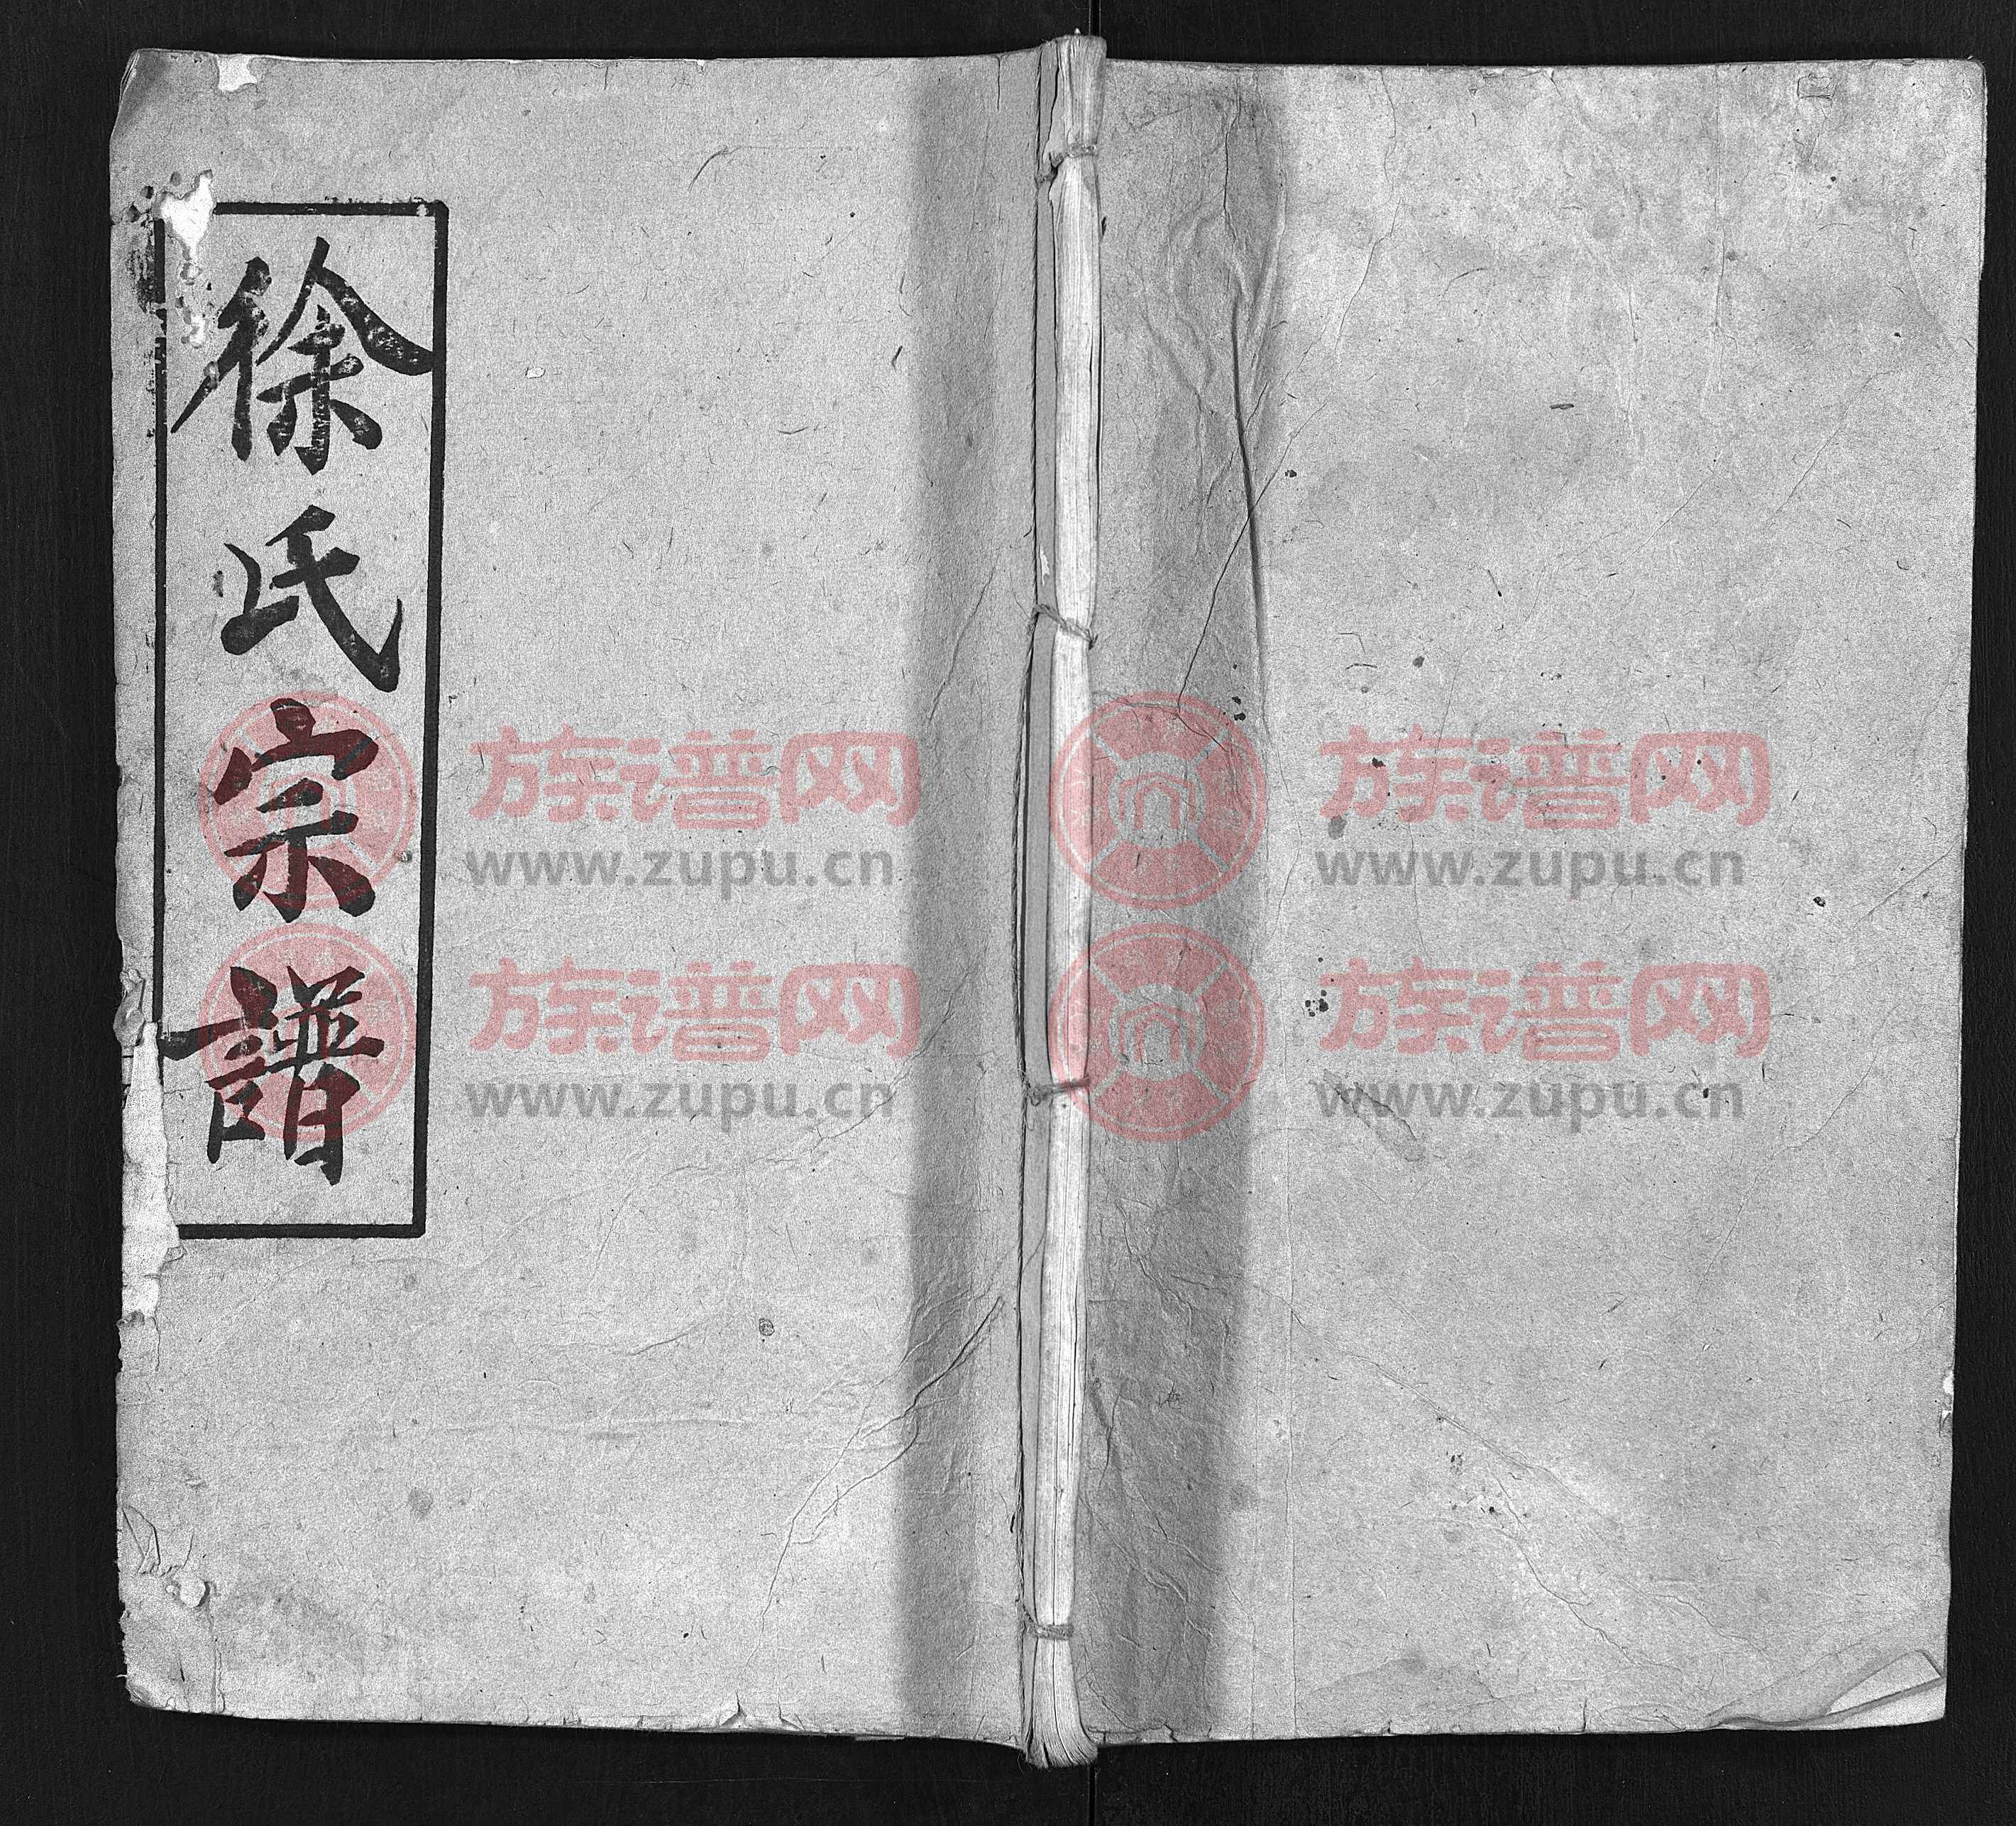 徐氏宗譜
族谱网
www.zupu.cn
族谱网
www.zupu.cn
族谱网
www.zupu.cn
族谱网
www.zupu.cn